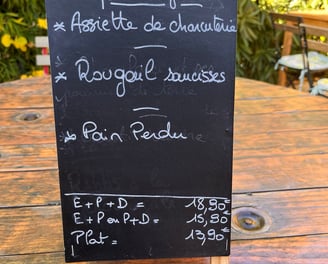 * Assiette de charcuterie
* Rougail saucisses
* Pain Perdu
E+P+D = 18,90€
E+P ou P+D = 15,90
Plat = 13,90€